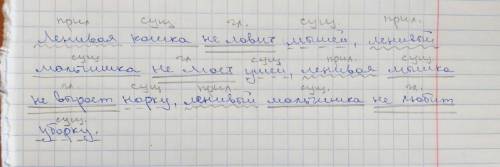 прил. сущ. гл. сущ. прил.
Ленивая кошка не ловит мышей, ленивый
сущ. гл. сущ. прил. сущ.
мальчишка не моет ушей, ленивая мышка
гл. сущ. прил. сущ. гл.
не выроет норку, ленивый мальчишка не любит
сущ.
уборку.